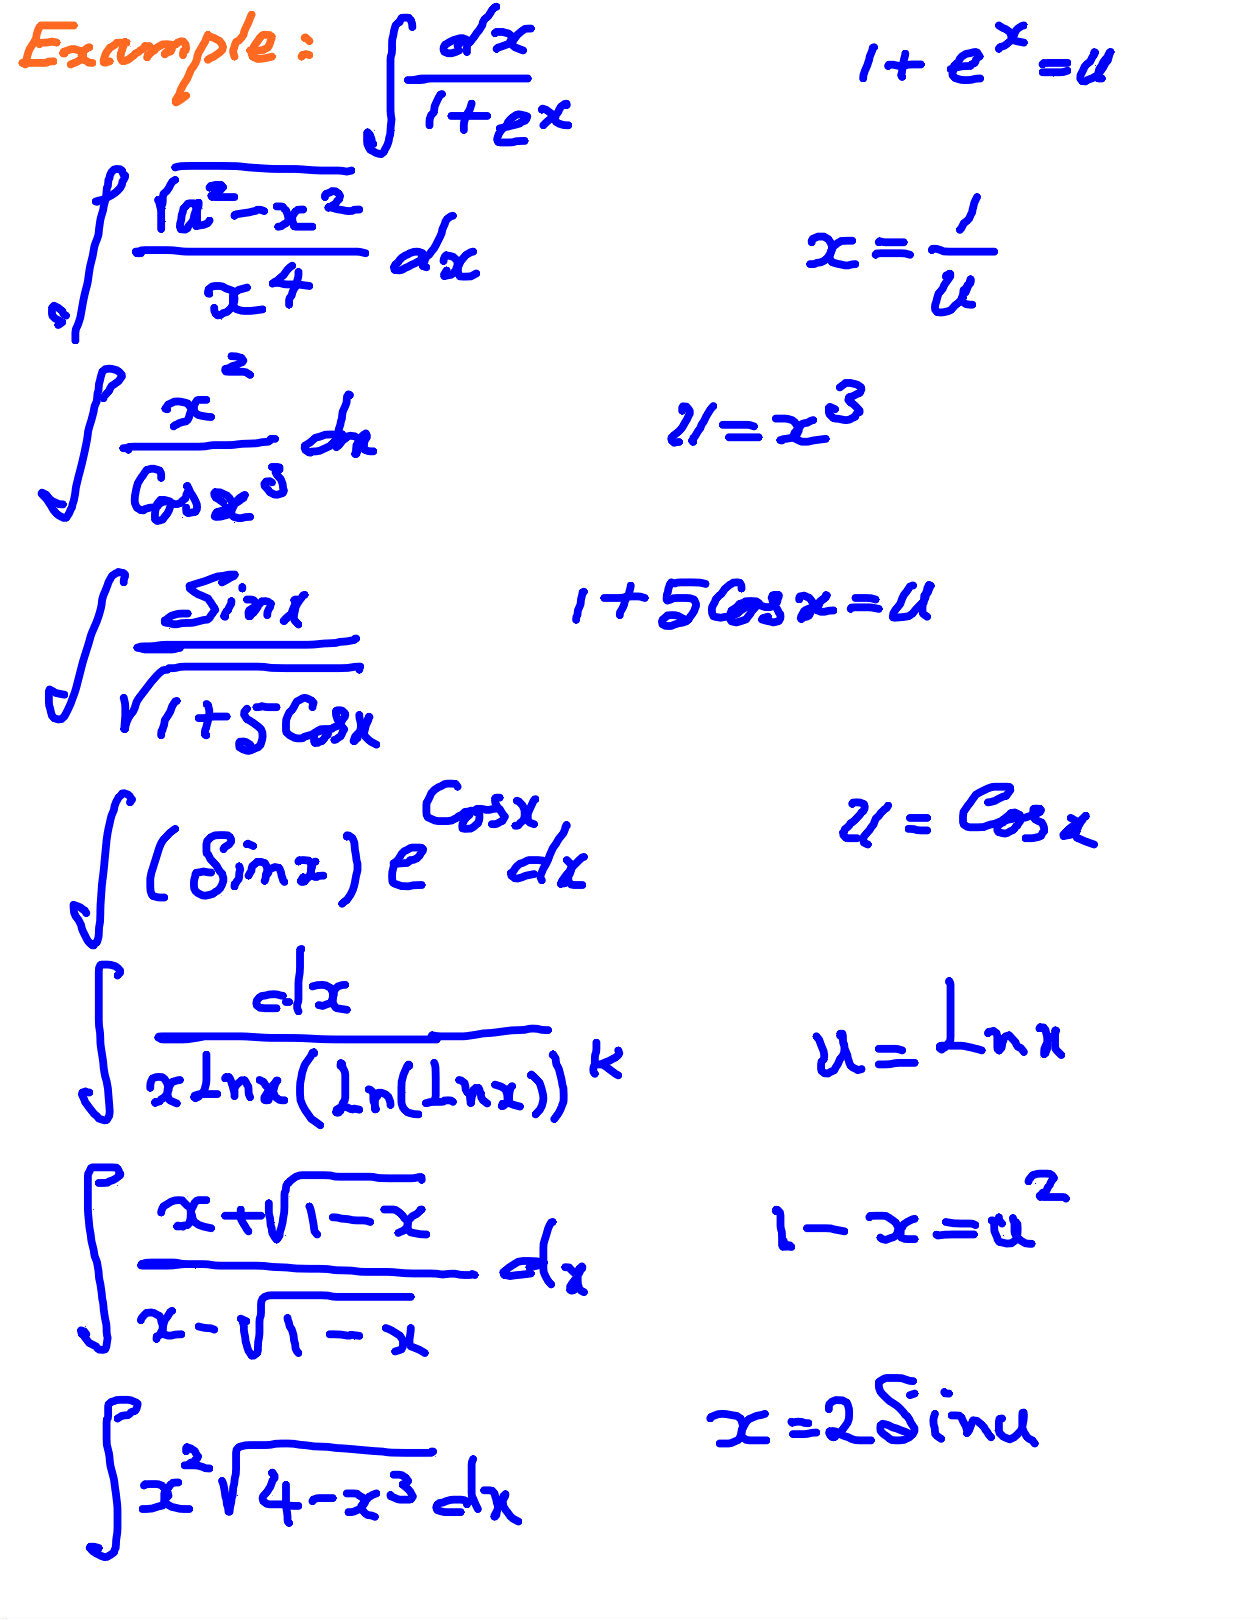 Example: ∫ dx / (1 + e^x)    1 + e^x = u
∫ √(a² - x²) / x⁴ dx    x = 1/u
∫ x² / Cos x³ dx    u = x³
∫ Sinx / √(1 + 5Cosx)    1 + 5Cosx = u
∫ (Sinx) e^Cosx dx    u = Cosx
∫ dx / x Lnx (Ln(Lnx))^k    u = Lnx
∫ (x + √(1 - x)) / (x - √(1 - x)) dx    1 - x = u²
∫ x² √(4 - x³) dx    x = 2Sinu